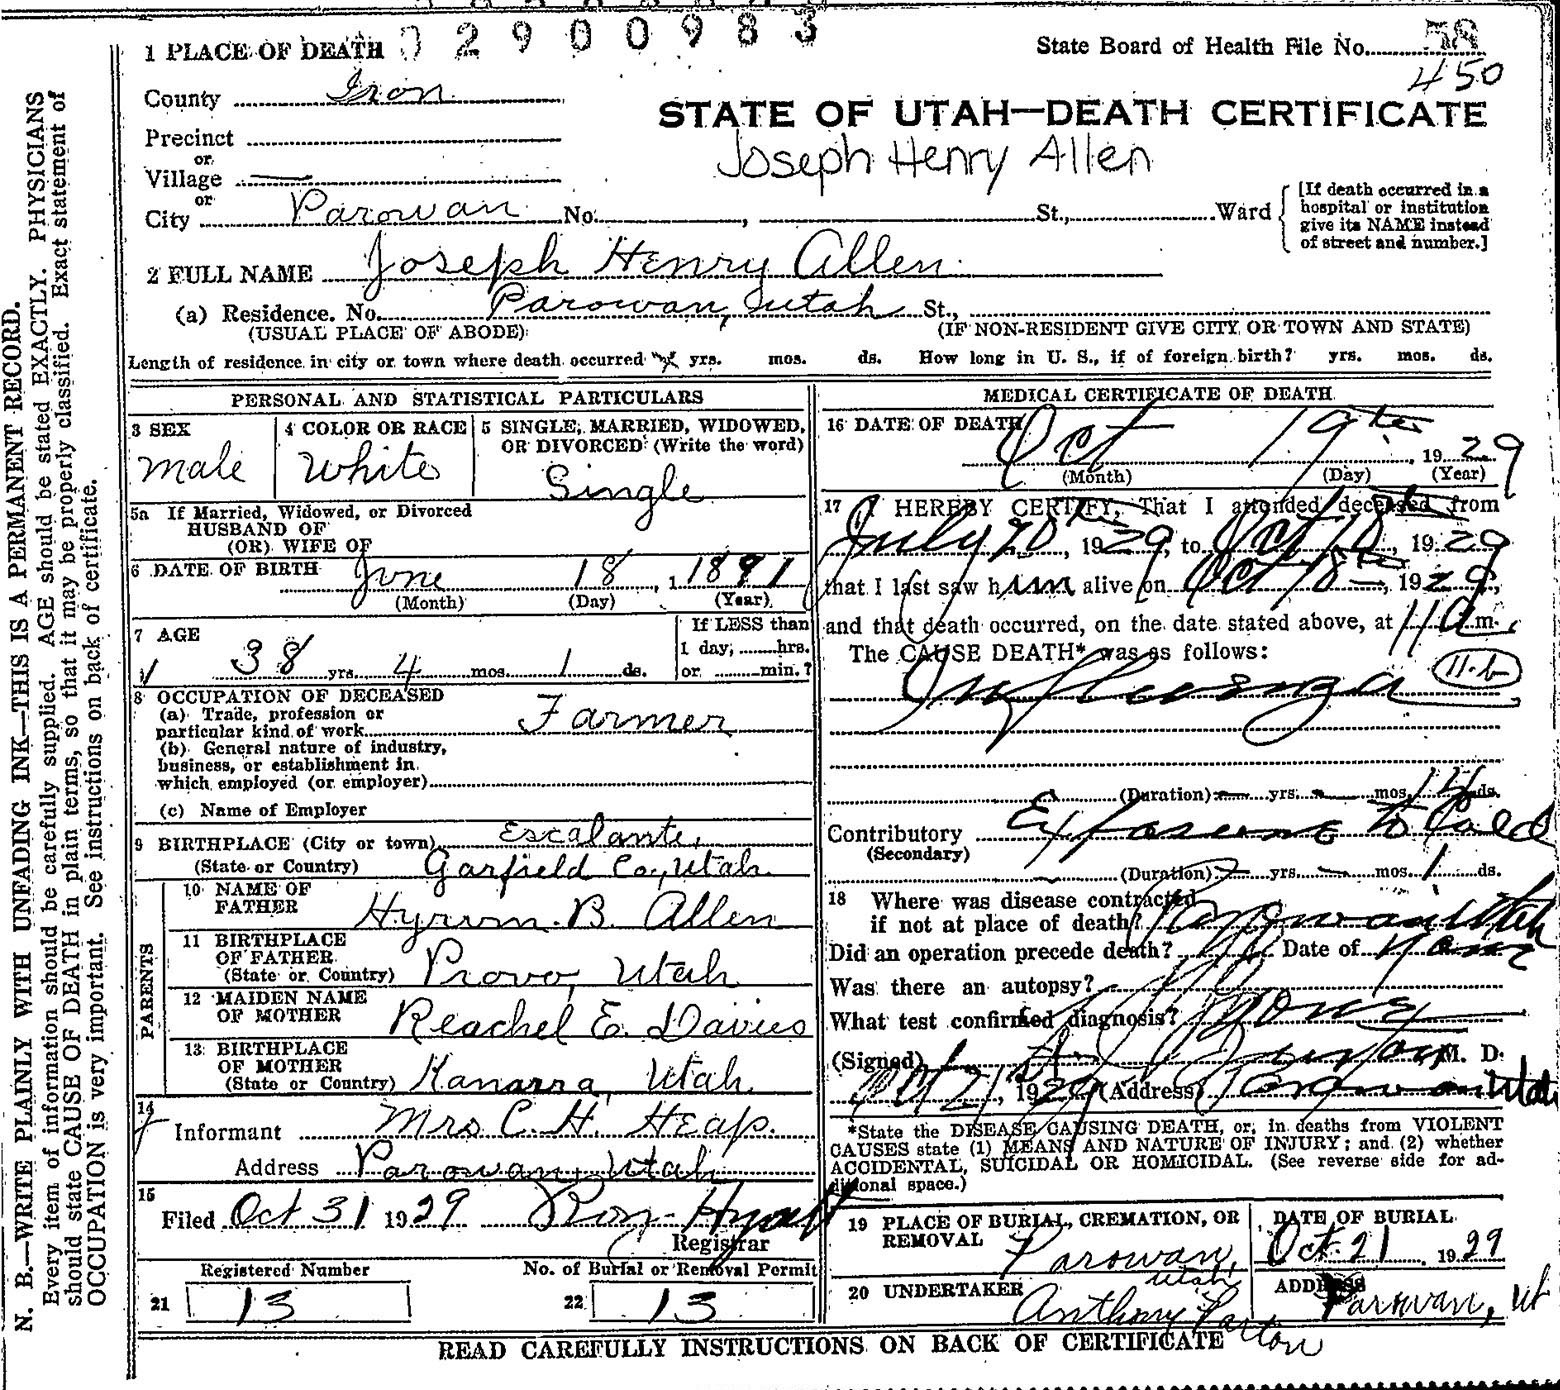 02900983
1 PLACE OF DEATH
State Board of Health File No. 58
450
County Iron
STATE OF UTAH—DEATH CERTIFICATE
Joseph Henry Allen
Precinct
or
Village —
or
City Parowan No. , St., Ward
[If death occurred in a
hospital or institution
give its NAME instead
of street and number.]
2 FULL NAME Joseph Henry Allen
(a) Residence. No. Parowan, Utah St.,
(USUAL PLACE OF ABODE) (IF NON-RESIDENT GIVE CITY OR TOWN AND STATE)
Length of residence in city or town where death occurred yrs. mos. ds. How long in U. S., if of foreign birth? yrs. mos. ds.
PERSONAL AND STATISTICAL PARTICULARS
3 SEX
Male
4 COLOR OR RACE
White
5 SINGLE, MARRIED, WIDOWED,
OR DIVORCED (Write the word)
Single
5a If Married, Widowed, or Divorced
HUSBAND OF
(OR) WIFE OF
6 DATE OF BIRTH June 18, 1 1891
(Month) (Day) (Year)
7 AGE
38 yrs. 4 mos. 1 ds.
If LESS than
1 day, hrs.
or min.?
8 OCCUPATION OF DECEASED
(a) Trade, profession or
particular kind of work Farmer
(b) General nature of industry,
business, or establishment in
which employed (or employer)
(c) Name of Employer
9 BIRTHPLACE (City or town) Escalante,
(State or Country) Garfield Co., Utah
PARENTS
10 NAME OF
FATHER Hyrum B. Allen
11 BIRTHPLACE
OF FATHER
(State or Country) Provo, Utah
12 MAIDEN NAME
OF MOTHER Reachel E. Davies
13 BIRTHPLACE
OF MOTHER
(State or Country) Kanarra, Utah
14
Informant Mrs C. H. Heap.
Address Parowan, Utah
15
Filed Oct 31 1929 Roy Hyatt
Registrar
Registered Number
21 13
No. of Burial or Removal Permit
22 13
MEDICAL CERTIFICATE OF DEATH
16 DATE OF DEATH Oct 19th, 1929
(Month) (Day) (Year)
17 I HEREBY CERTIFY, That I attended deceased from
July 20th, 1929, to Oct 18th, 1929
that I last saw him alive on Oct 18th, 1929,
and that death occurred, on the date stated above, at 11 a m.
The CAUSE DEATH* was as follows:
11-b
Influenza
(Duration) — yrs. — mos. 14 ds.
Contributory Exposure to Cold
(Secondary)
(Duration) — yrs. — mos. 1 ds.
18 Where was disease contracted
if not at place of death? Parowan Utah
Did an operation precede death? No Date of None
Was there an autopsy? No
What test confirmed diagnosis? None
(Signed) Burton, M. D.
Oct 21, 1929 (Address) Parowan Utah
*State the DISEASE CAUSING DEATH, or, in deaths from VIOLENT
CAUSES state (1) MEANS AND NATURE OF INJURY; and (2) whether
ACCIDENTAL, SUICIDAL OR HOMICIDAL. (See reverse side for ad-
ditional space.)
19 PLACE OF BURIAL, CREMATION, OR
REMOVAL Parowan,
Utah
DATE OF BURIAL
Oct. 21 1929
20 UNDERTAKER
Anthony Paxton
ADDRESS
Parowan, Ut
READ CAREFULLY INSTRUCTIONS ON BACK OF CERTIFICATE
N. B.—WRITE PLAINLY WITH UNFADING INK—THIS IS A PERMANENT RECORD.
Every item of information should be carefully supplied. AGE should be stated EXACTLY. PHYSICIANS
should state CAUSE OF DEATH in plain terms, so that it may be properly classified. Exact statement of
OCCUPATION is very important. See instructions on back of certificate.